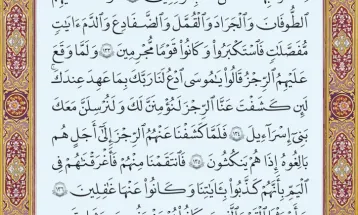 ٱلطُّوفَانَ وَٱلْجَرَادَ وَٱلْقُمَّلَ وَٱلضَّفَادِعَ وَٱلدَّمَ ءَايَٰتٖ
مُّفَصَّلَٰتٖ فَٱسْتَكْبَرُواْ وَكَانُواْ قَوْمٗا مُّجْرِمِينَ ١٣٣ وَلَمَّا وَقَعَ
عَلَيْهِمُ ٱلرِّجْزُ قَالُواْ يَٰمُوسَى ٱدْعُ لَنَا رَبَّكَ بِمَا عَهِدَ عِندَكَۖ
لَئِن كَشَفْتَ عَنَّا ٱلرِّجْزَ لَنُؤْمِنَنَّ لَكَ وَلَنُرْسِلَنَّ مَعَكَ
بَنِيٓ إِسْرَٰٓءِيلَ ١٣٤ فَلَمَّا كَشَفْنَا عَنْهُمُ ٱلرِّجْزَ إِلَىٰٓ أَجَلٍ هُم
بَٰلِغُوهُ إِذَا هُمْ يَنكُثُونَ ١٣٥ فَٱنتَقَمْنَا مِنْهُمْ فَأَغْرَقْنَٰهُمْ فِي
ٱلْيَمِّ بِأَنَّهُمْ كَذَّبُواْ بِـَٔايَٰتِنَا وَكَانُواْ عَنْهَا غَٰفِلِينَ ١٣٦